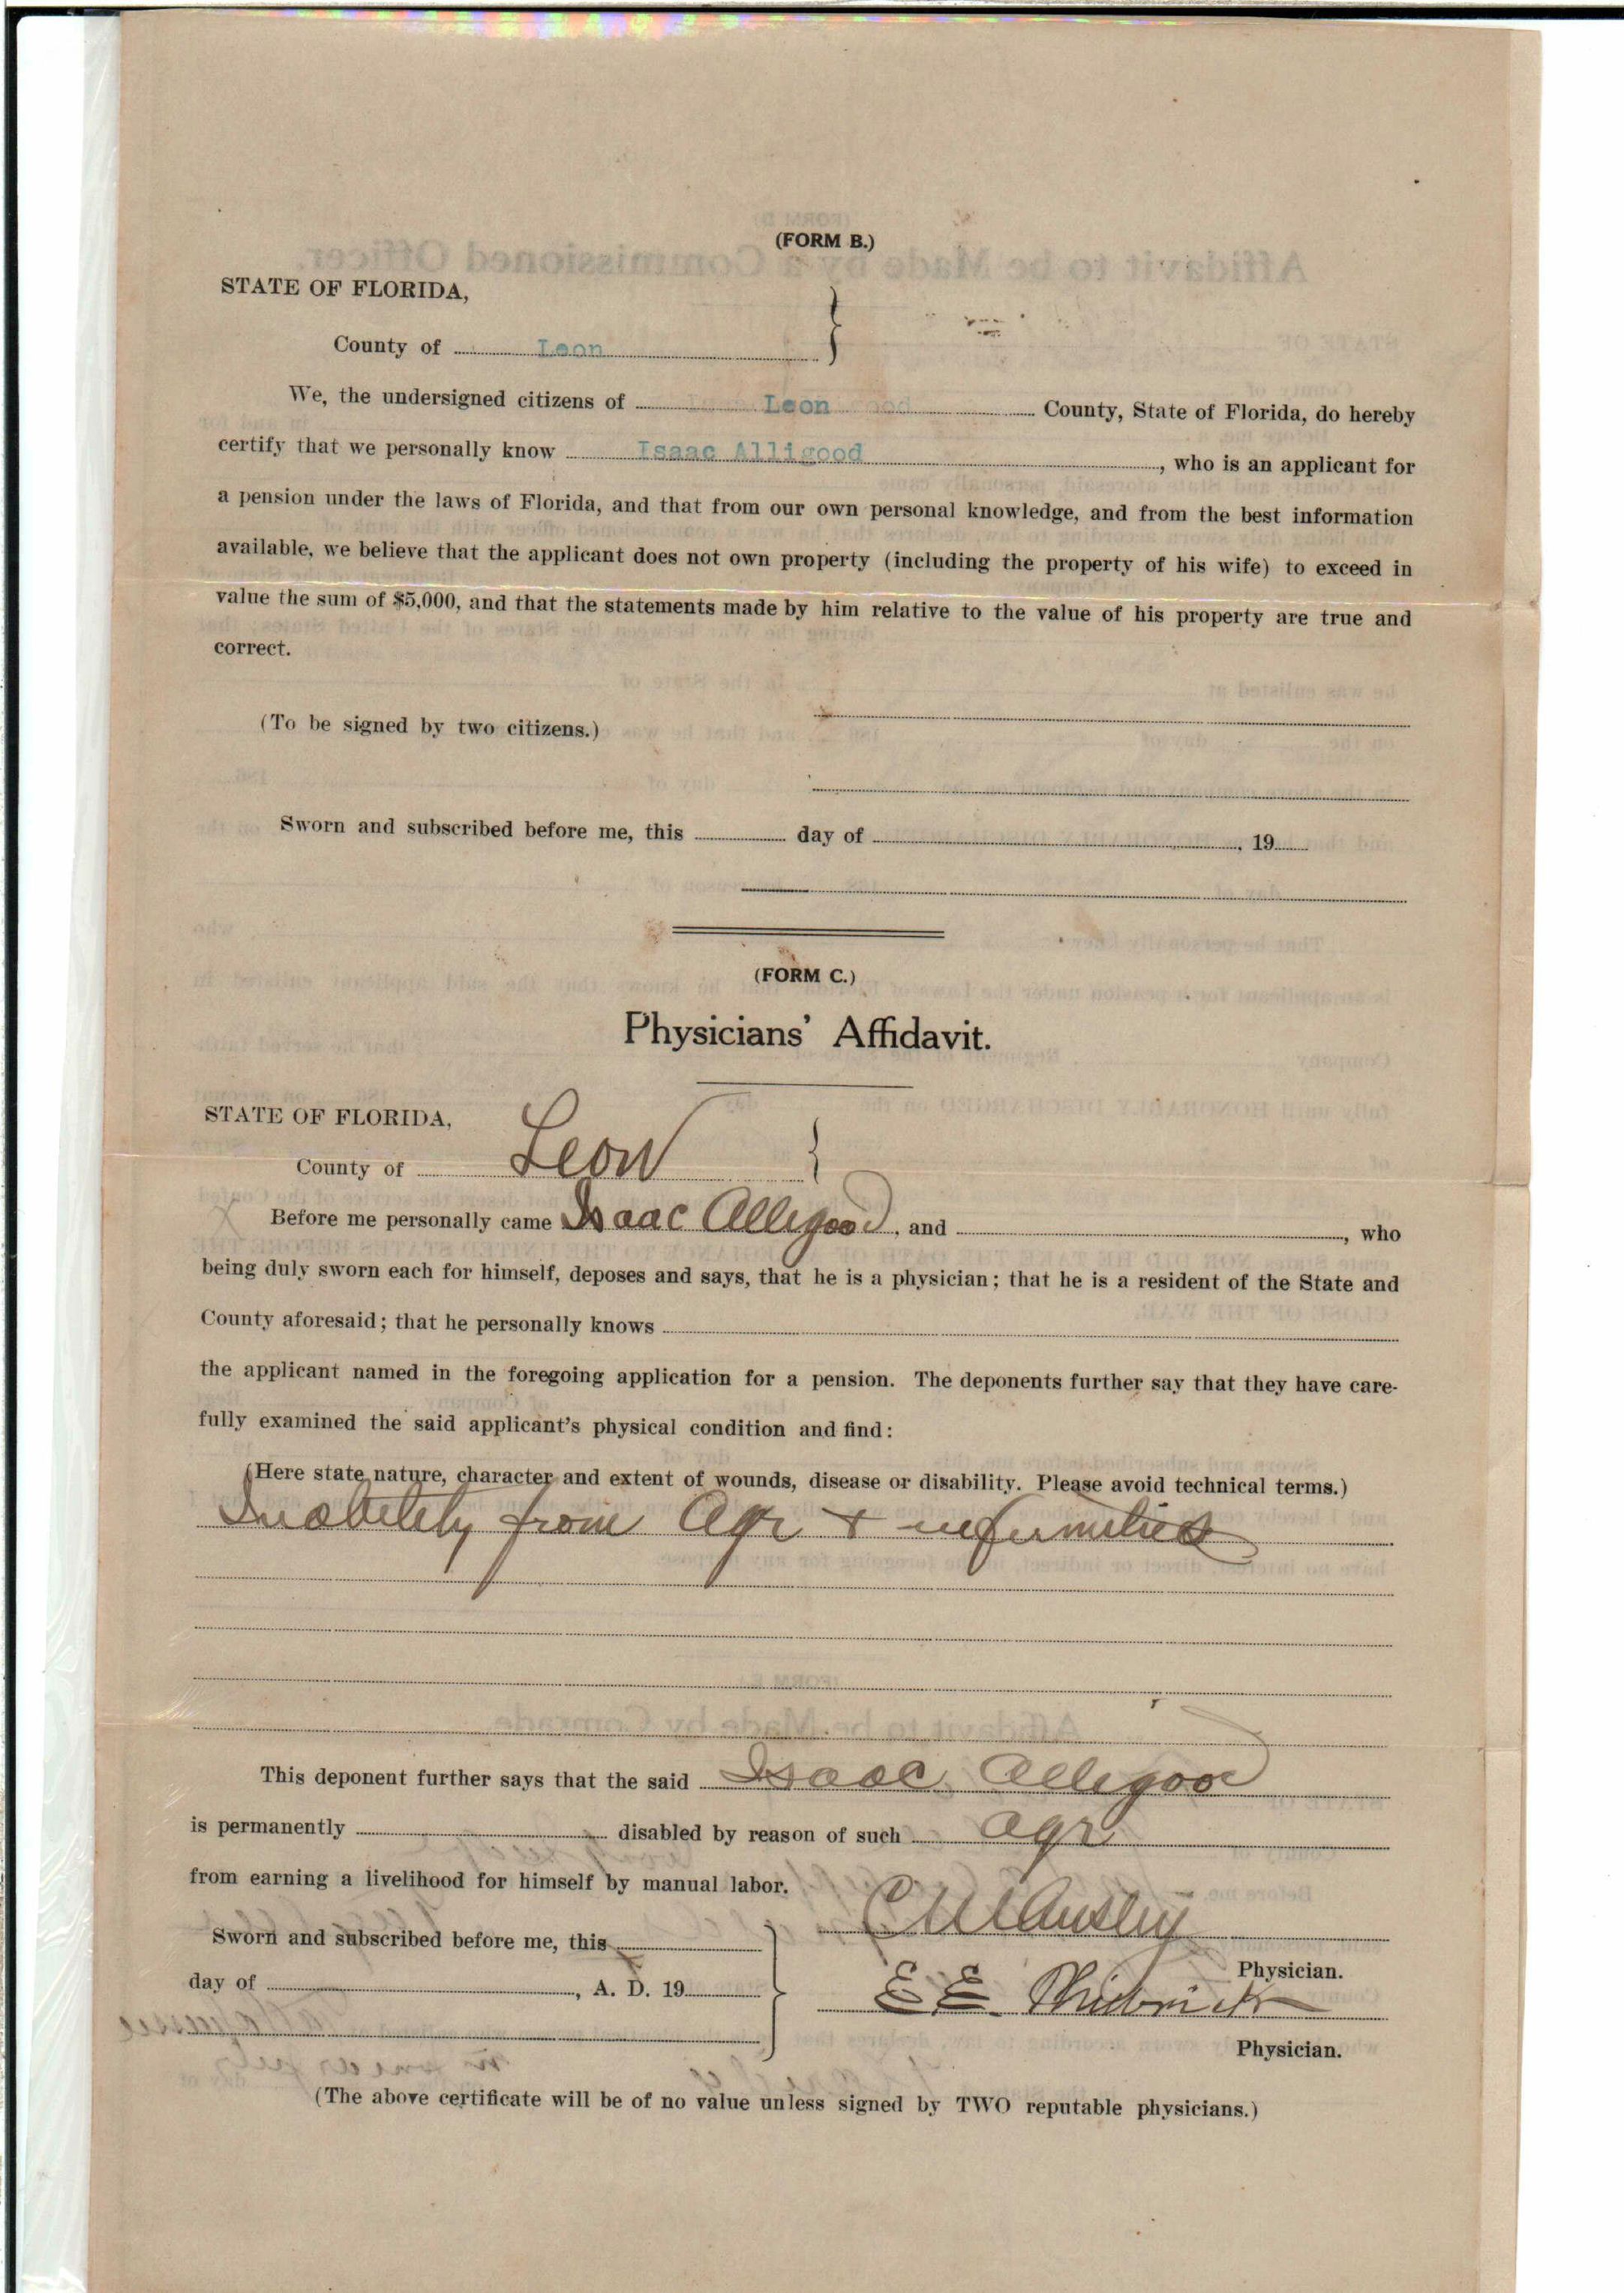 (FORM B.)
STATE OF FLORIDA,
County of Leon
We, the undersigned citizens of Leon County, State of Florida, do hereby
certify that we personally know Isaac Alligood, who is an applicant for
a pension under the laws of Florida, and that from our own personal knowledge, and from the best information
available, we believe that the applicant does not own property (including the property of his wife) to exceed in
value the sum of $5,000, and that the statements made by him relative to the value of his property are true and
correct.
(To be signed by two citizens.)
Sworn and subscribed before me, this day of , 19
(FORM C.)
Physicians' Affidavit.
STATE OF FLORIDA,
County of Leon
Before me personally came Isaac Alligood, and , who
being duly sworn each for himself, deposes and says, that he is a physician; that he is a resident of the State and
County aforesaid; that he personally knows
the applicant named in the foregoing application for a pension. The deponents further say that they have care-
fully examined the said applicant's physical condition and find:
(Here state nature, character and extent of wounds, disease or disability. Please avoid technical terms.)
from Age + infirmities
This deponent further says that the said Isaac Alligood
is permanently disabled by reason of such age
from earning a livelihood for himself by manual labor.
Sworn and subscribed before me, this
Physician.
day of , A. D. 19
E E
Physician.
(The above certificate will be of no value unless signed by TWO reputable physicians.)